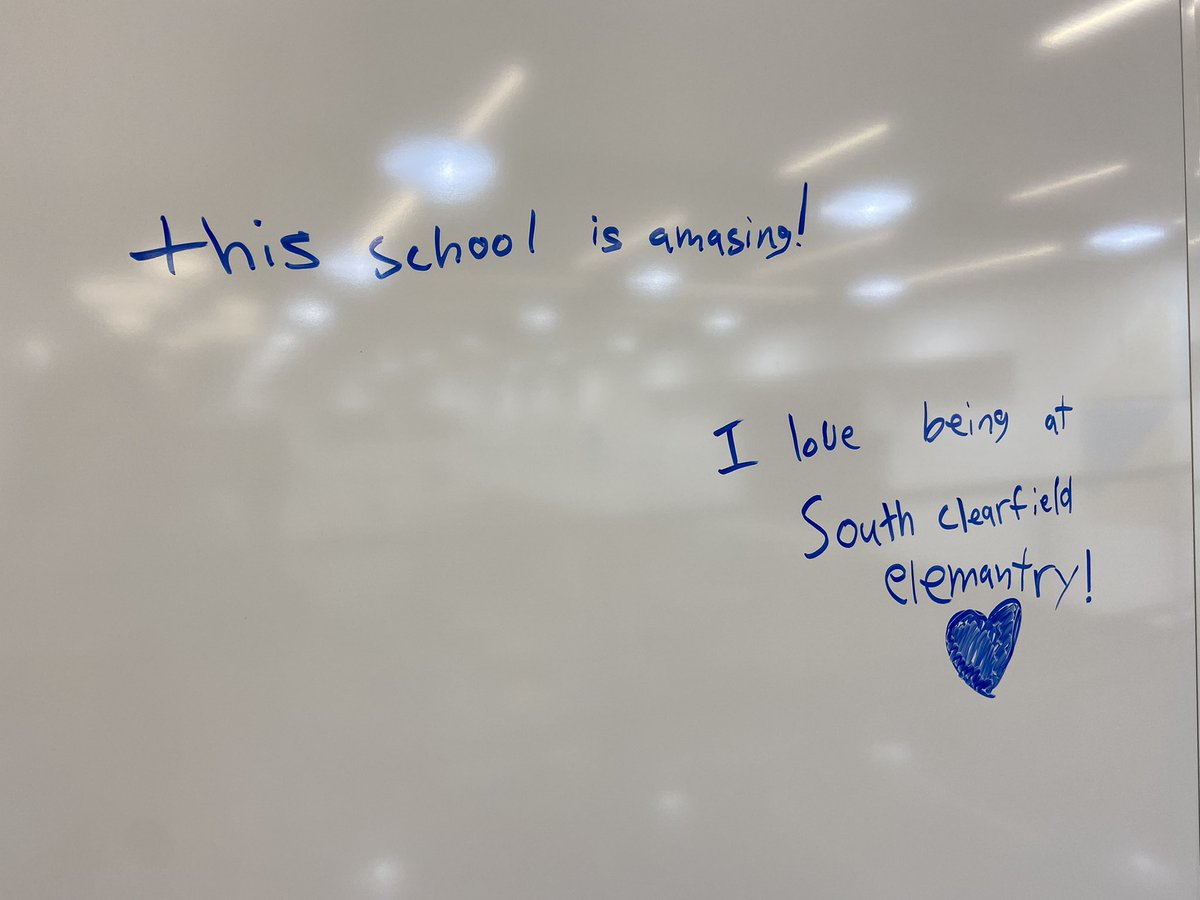 this school is amasing!
I love being at
South clearfield
elemantry!